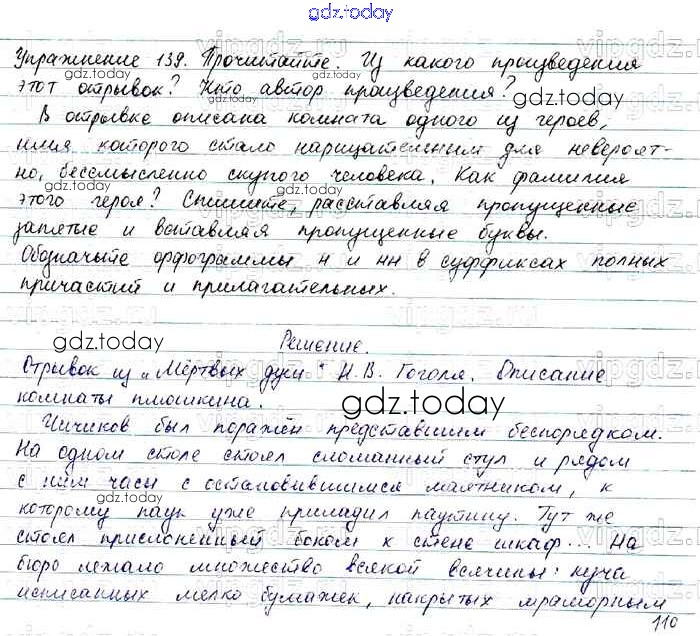 gdz.today
Упражнение 139. Прочитайте. Из какого произведения
этот отрывок? Кто автор произведения?
В отрывке описана комната одного из героев,
имя которого стало нарицательным для невероят-
но, бессмысленно скупого человека. Как фамилия
этого героя? Спишите, расставляя пропущенные
запятые и вставляя пропущенные буквы.
Обозначьте орфограммы н и нн в суффиксах полных
причастий и прилагательных.
Решение.
Отрывок из „Мёртвых душ" Н.В. Гоголя. Описание
комнаты плюшкина.
Чичиков был поражён представшим беспорядком.
На одном столе стоял сломанный стул и рядом
с ним часы с остановившимся маятником, к
которому паук уже приладил паутину. Тут же
стоял прислонённый боком к стене шкаф... На
бюро лежало множество всякой всячины: куча
исписанных мелко бумажек, накрытых мраморным
110